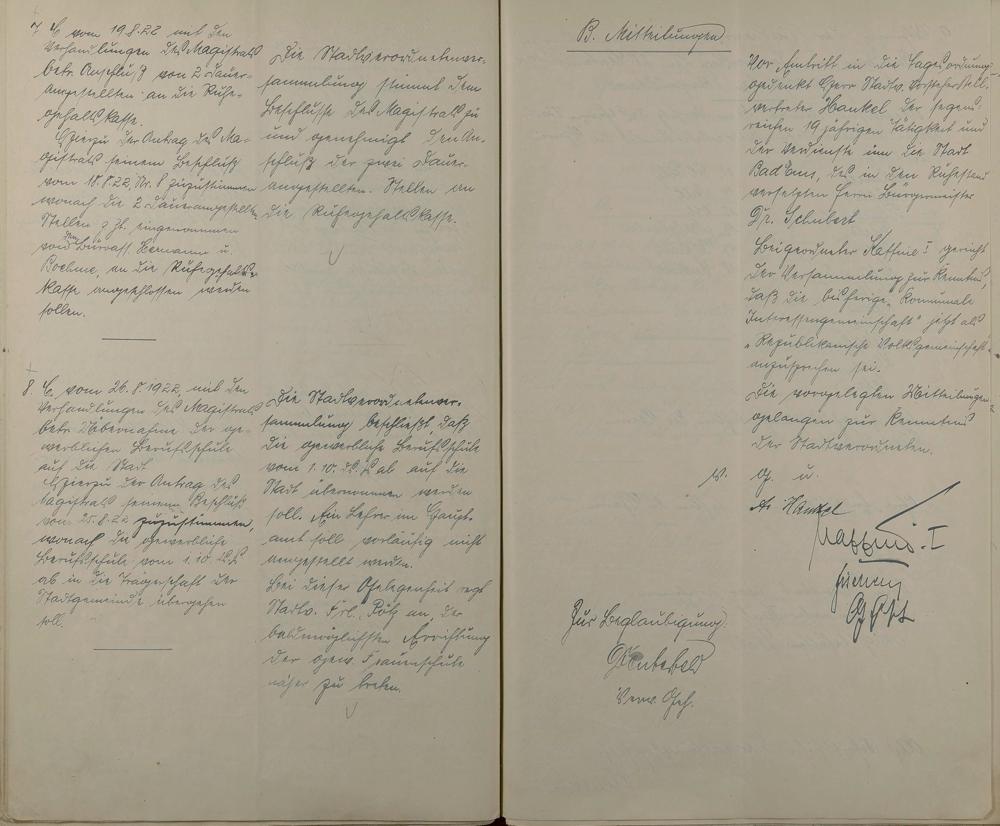 7. C. vom 19.8.22 mit den
Verhandlungen des Magistrats
betr. Anschluß von 2 Dauer-
angestellten an die Ruhe-
gehaltskasse.
Hierzu der Antrag des Ma-
gistrats seinem Beschluß
vom 18.8.22 Nr. 8 zuzustimmen
wonach die 2 Dauerangestellten
Stellen z. Zt. eingenommen
von den Büroass. Hermann u.
Boehme, an die Ruhegehalts-
kasse angeschlossen werden
sollen.
Die Stadtverordnetenver-
sammlung stimmt dem
Beschlusse des Magistrats zu
und genehmigt den An-
schluß der zwei Dauer-
angestellten Stellen an
die Ruhegehaltskasse.
8. C. vom 26.8.1922, mit den
Verhandlungen des Magistrats
betr. Übernahme der ge-
werblichen Berufsschule
auf die Stadt
Hierzu der Antrag des
Magistrats seinem Beschluß
vom 25.8.22 zuzustimmen,
wonach die gewerbliche
Berufsschule vom 1.10. ds. Js.
ab in die Trägerschaft der
Stadtgemeinde übergehen
soll.
Die Stadtverordnetenver-
sammlung beschließt, daß
die gewerbliche Berufsschule
vom 1.10. ds. Js. ab auf die
Stadt übernommen werden
soll. Ein Lehrer im Haupt-
amt soll vorläufig nicht
angestellt werden.
Bei dieser Gelegenheit regt
Stadtv. Frl. Pötz an, der
baldmöglichsten Errichtung
der gew. Frauenschule
näher zu treten.
B. Mitteilungen
Vor Eintritt in die Tagesordnung
gedenkt Herr Stadtv. Vorsteherstell-
vertreter Hankel der segens-
reichen 19 jährigen Tätigkeit und
der Verdienste um die Stadt
Bad Ems, des in den Ruhestand
versetzten Herrn Bürgermeister
Dr. Schubert
Beigeordneter Kaffine I gericht
der Versammlung zur Kenntnis,
daß die bisherige "Kommunale
Interessengemeinschaft" jetzt als
"Republikanische Volksgemeinschaft"
anzusprechen sei.
Die vorgelegten Mitteilungen
gelangen zur Kenntnis
der Stadtverordneten.
v. g. u.
Hankel
I
Zur Beglaubigung:
Verw. Geh.